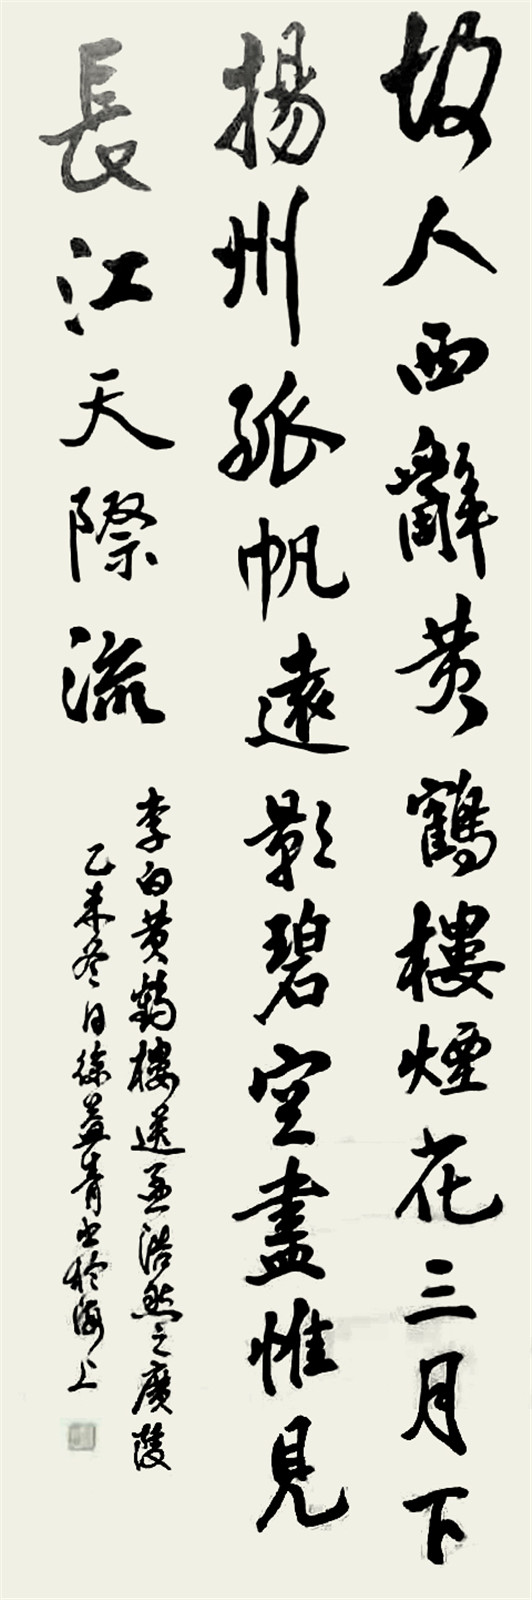 故人西辭黄鶴樓煙花三月下
揚州孤帆遠影碧空盡惟見
長江天際流
李白黄鶴樓送孟浩然之廣陵
乙未冬日徐益青書於海上